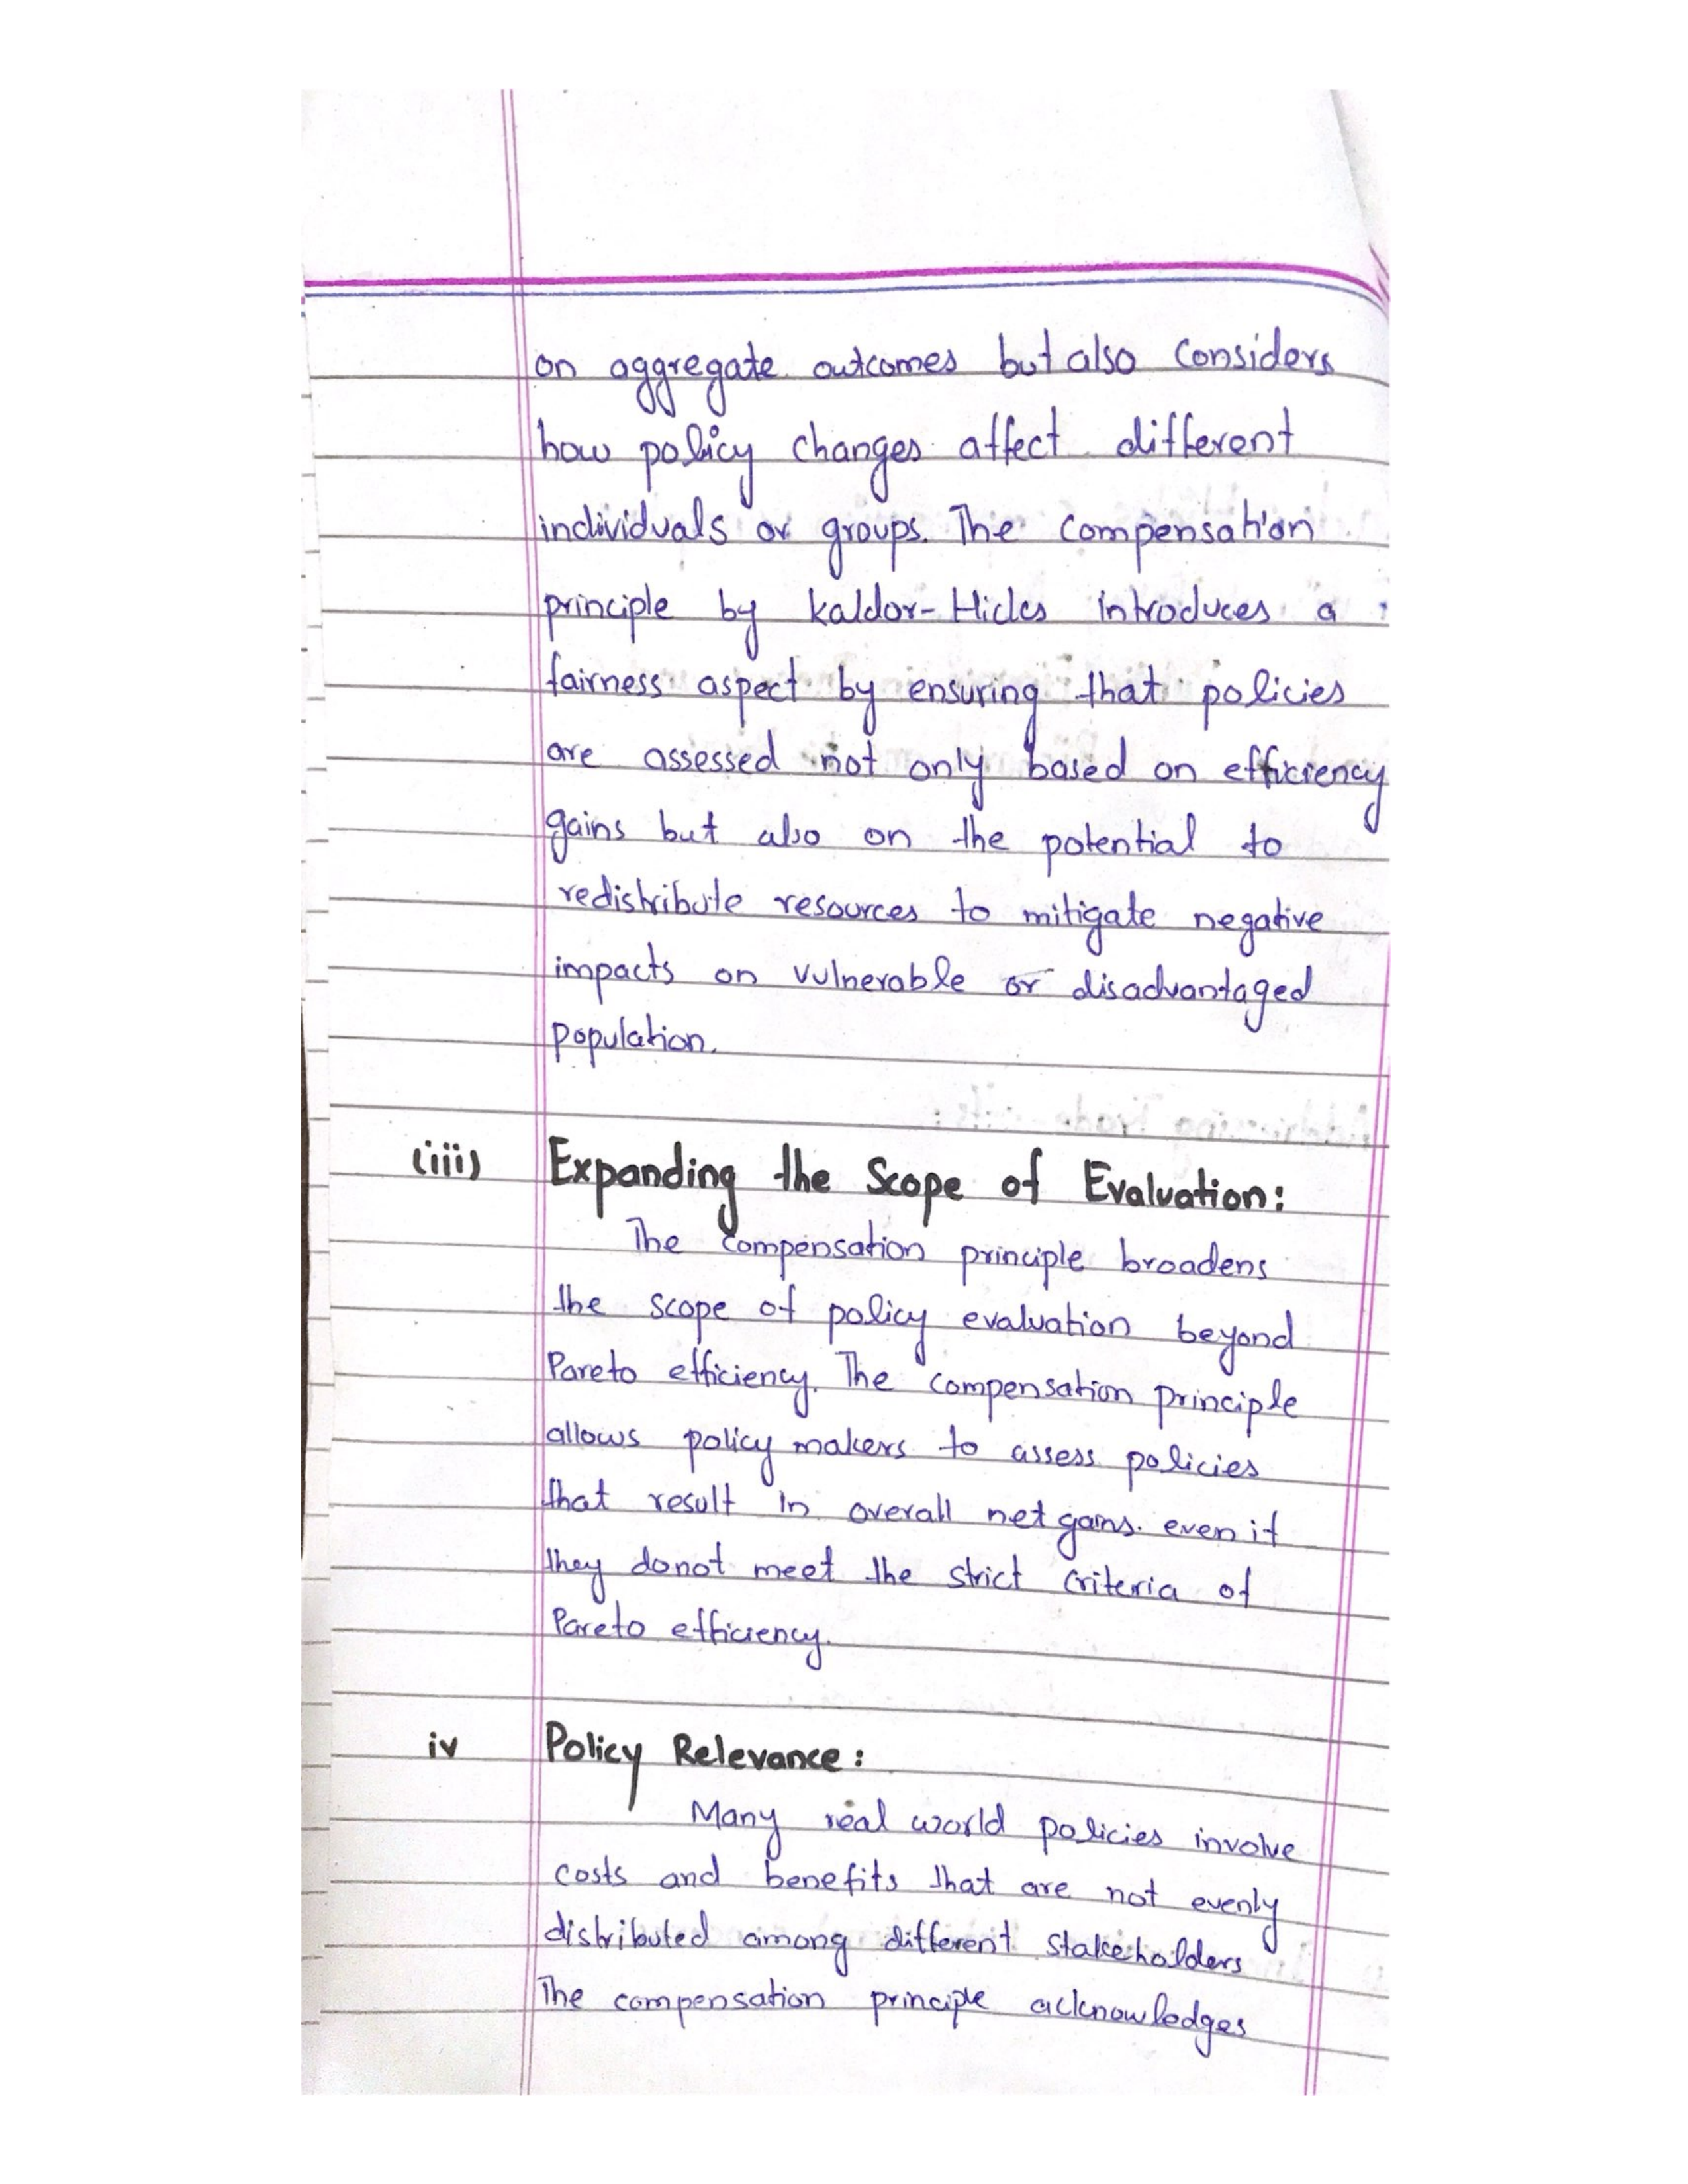 on aggregate outcomes but also considers
how policy changes affect different
individuals or groups. The compensation
principle by Kaldor-Hicks introduces a
fairness aspect by ensuring that policies
are assessed not only based on efficiency
gains but also on the potential to
redistribute resources to mitigate negative
impacts on vulnerable or disadvantaged
population.
(iii) Expanding the Scope of Evaluation:
The compensation principle broadens
the scope of policy evaluation beyond
Pareto efficiency. The compensation principle
allows policy makers to assess policies
that result in overall net gains. even if
they donot meet the strict criteria of
Pareto efficiency.
iv Policy Relevance:
Many real world policies involve
costs and benefits that are not evenly
distributed among different stakeholders
The compensation principle acknowledges